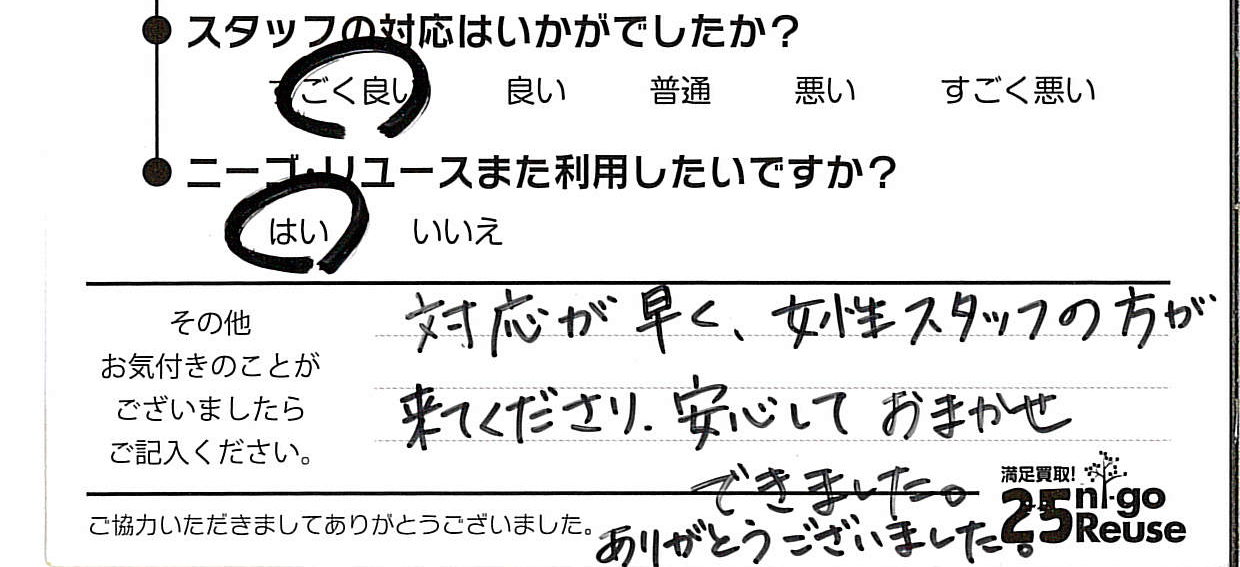 スタッフの対応はいかがでしたか？
すごく良い 良い 普通 悪い すごく悪い
ニーゴ・リユースまた利用したいですか？
はい いいえ
その他
お気付きのことが
ございましたら
ご記入ください。
対応が早く、女性スタッフの方が
来てくださり、安心しておまかせ
できました。
ありがとうございました。
ご協力いただきましてありがとうございました。
満足買取!
25 ni-go
Reuse